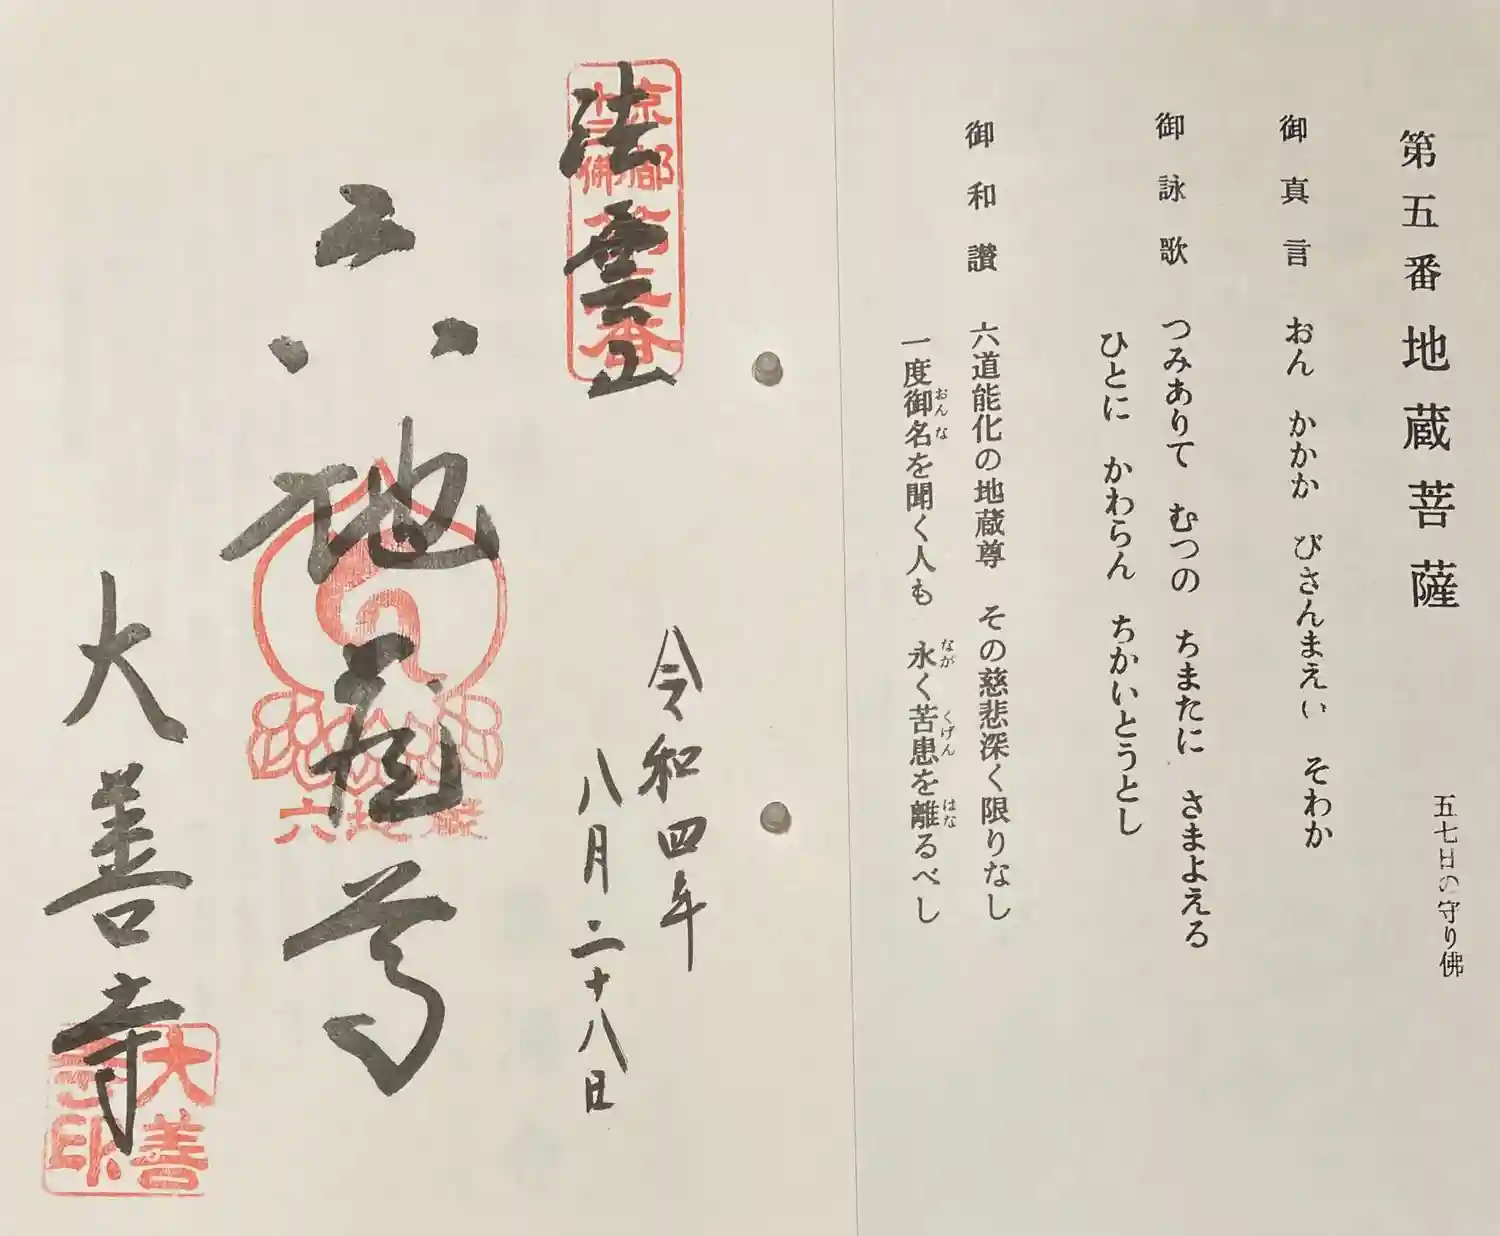 第五番 地蔵菩薩 五七日の守り佛
御真言 おん かかか びさんまえい そわか
御詠歌 つみありて むつの ちまたに さまよえる
ひとに かわらん ちかいとうとし
御和讃 六道能化の地蔵尊 その慈悲深く限りなし
一度御名を聞く人も 永く苦患を離るべし
おん な
なが
くげん
はな
京都
十三佛
第五番
法雲山
令和四年
八月二十八日
六地蔵尊
六地蔵
大善寺
大善
寺印